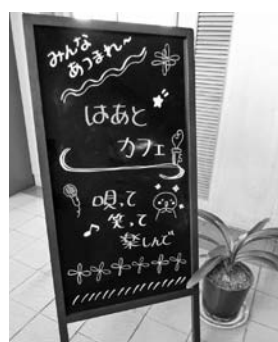 みんな
あつまれ~
はあと
カフェ
唄って
笑って
楽しんで